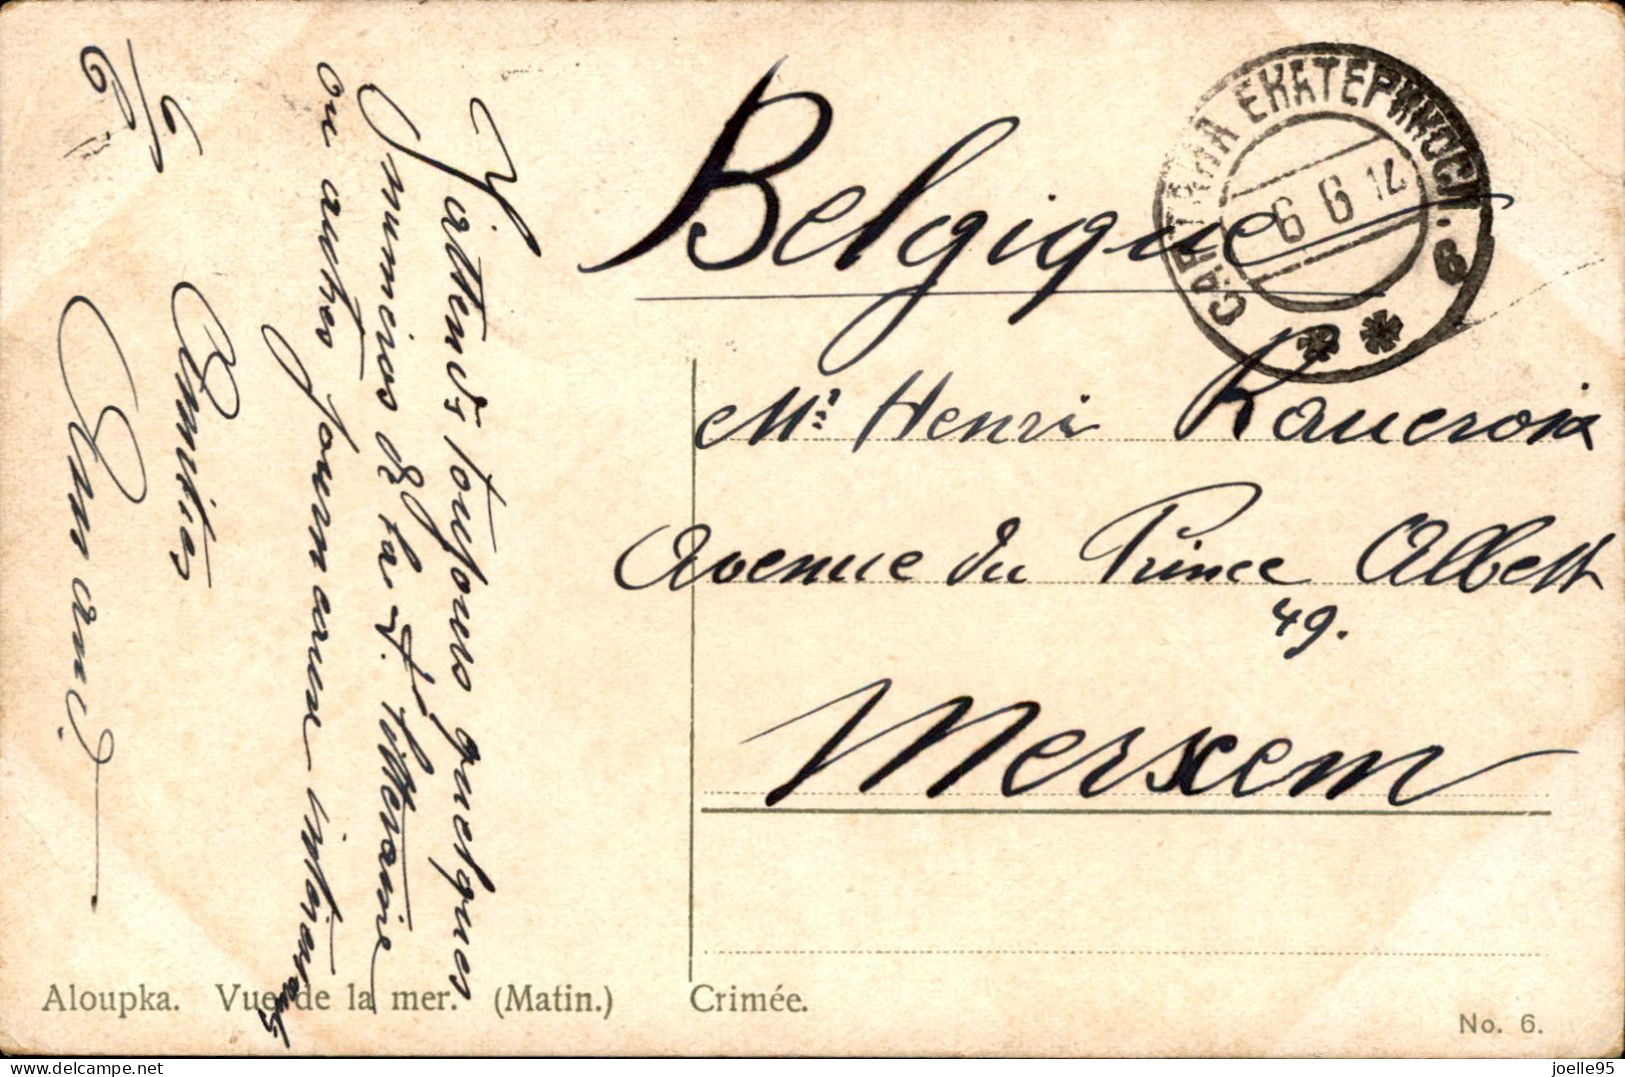 6/6
J'attends toujours quelques
numéros de la f. littéraire
ou autres journeaux intéressants
Amitiés
Armand.
Belgique
САРТАНА ЕКАТЕРИНОСЛ. в
6 6 14
Mr Henri
Avenue du Prince Albert
49.
Merxem
Aloupka. Vue de la mer. (Matin.) Crimée.
No. 6.
delcampe.net
joelle95